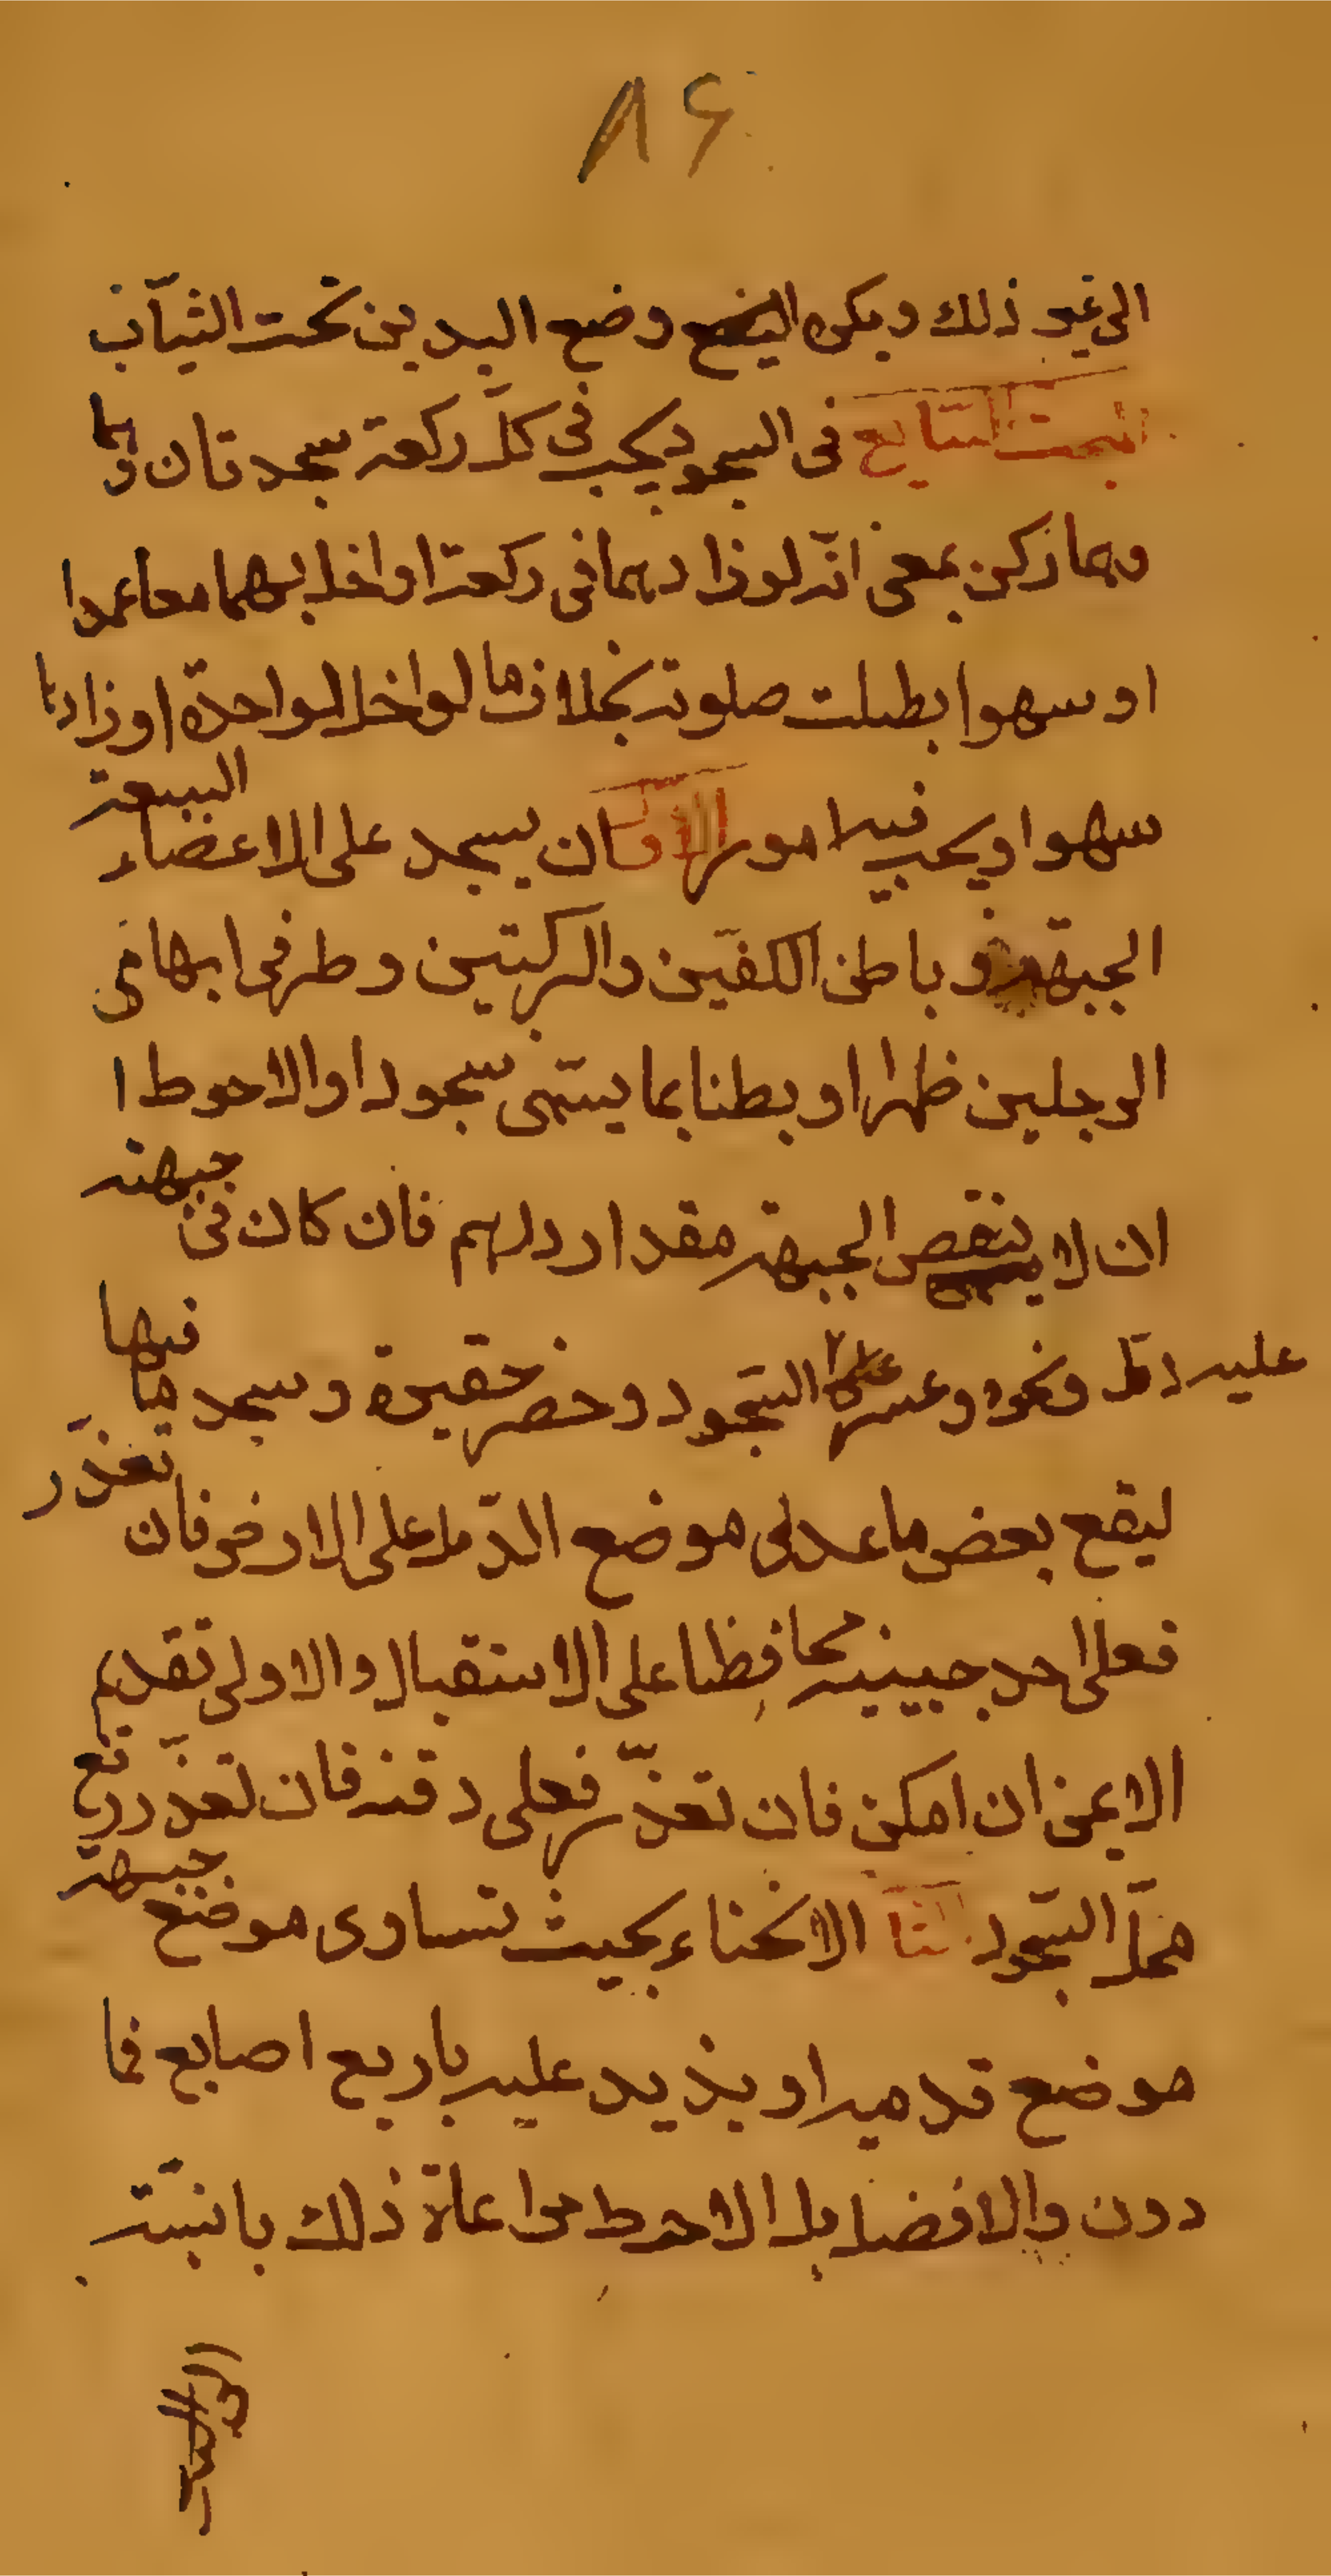 ٨٤
الى غير ذلك ويكره ايضا وضع اليدين تحت الثياب
المبحث السابع فى السجود يجب فى كل ركعة سجدتان وهما
وهما ركن بمعنى انه لو زادهما فى ركعة او اخل بهما معا عمدا
او سهوا بطلت صلوته بخلاف ما لو اخل الواحدة او زادها
سهوا ويجب فيه امور الاول ان يسجد على الاعضاء السبعة
الجبهة و باطن الكفين والركبتين وطرفى ابهامى
الرجلين ظهرا او بطنا بما يسمى سجودا والاحوط ا
ان لا ينقص الجبهة مقدار درهم فان كان فى جبهته
عليه دمل ونحوه وعسر عليه السجود وحضر حقيرة وسجد فيها
ليقع بعض ما عدى موضع الدمل على الارض فان تعذر
فعلى احد جبينيه محافظا على الاستقبال والاولى تقديم
الايمن ان امكن فان تعذر فعلى دقنه فان تعذر رفع
محل السجود الثا الانحناء بحيث تساوى موضع جبهته
موضع قدميه او يذيد عليه باربع اصابع فما
دون والافضل بل الاحوط مراعاة ذلك بانبسة